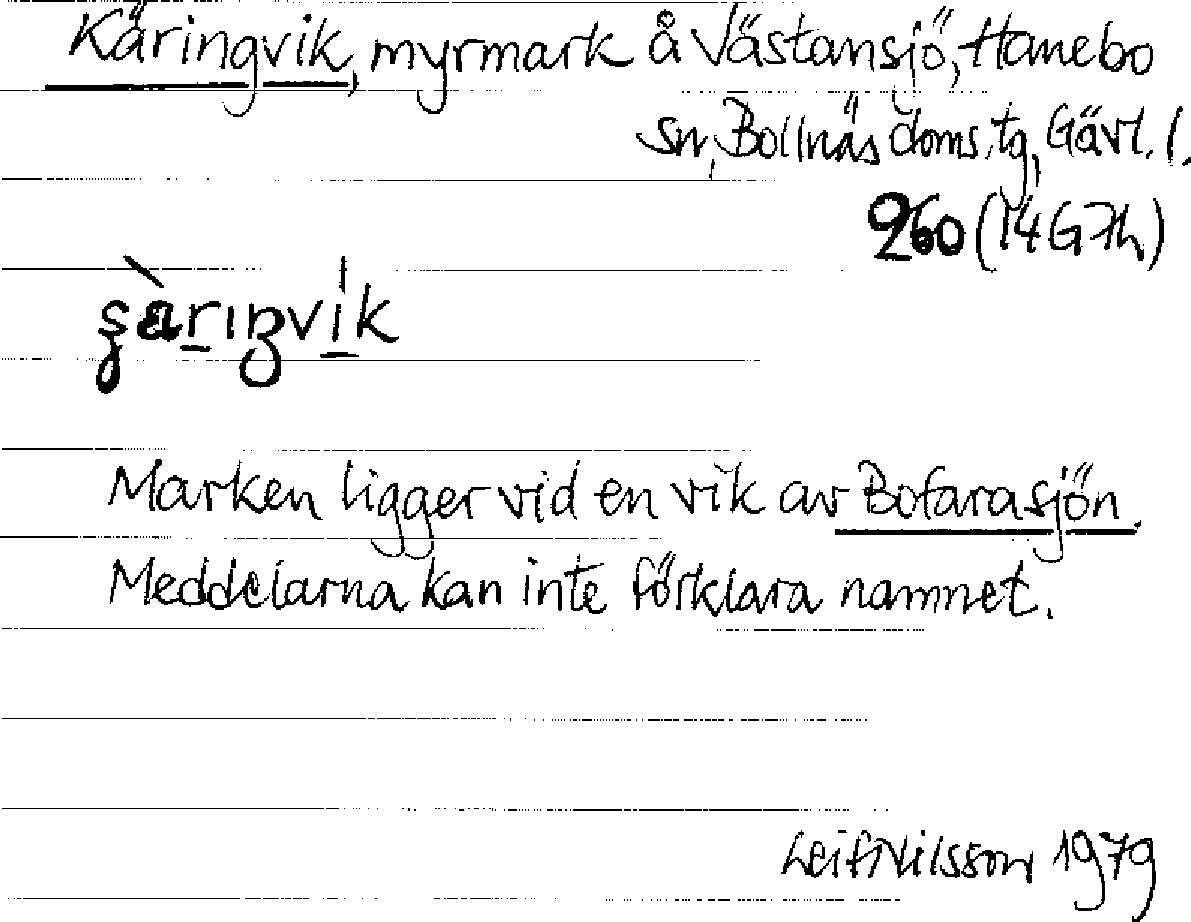 Käringvik, myrmark å Västansjö, Hanebo
sn, Bollnäs doms.tg, Gävl. l.
260 (14G7h)
Marken ligger vid en vik av Bofarasjön.
Meddelarna kan inte förklara namnet.
Leif Nilsson 1979